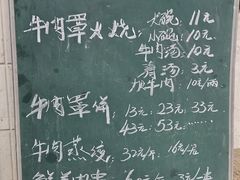 牛肉罩火烧:
大碗 11元
小碗 10元
牛肉汤 10元
清汤 3元
加牛肉 10元/两
牛肉罩饼, 13元. 23元. 33元
43元. 53元……
牛肉蒸
32元/斤